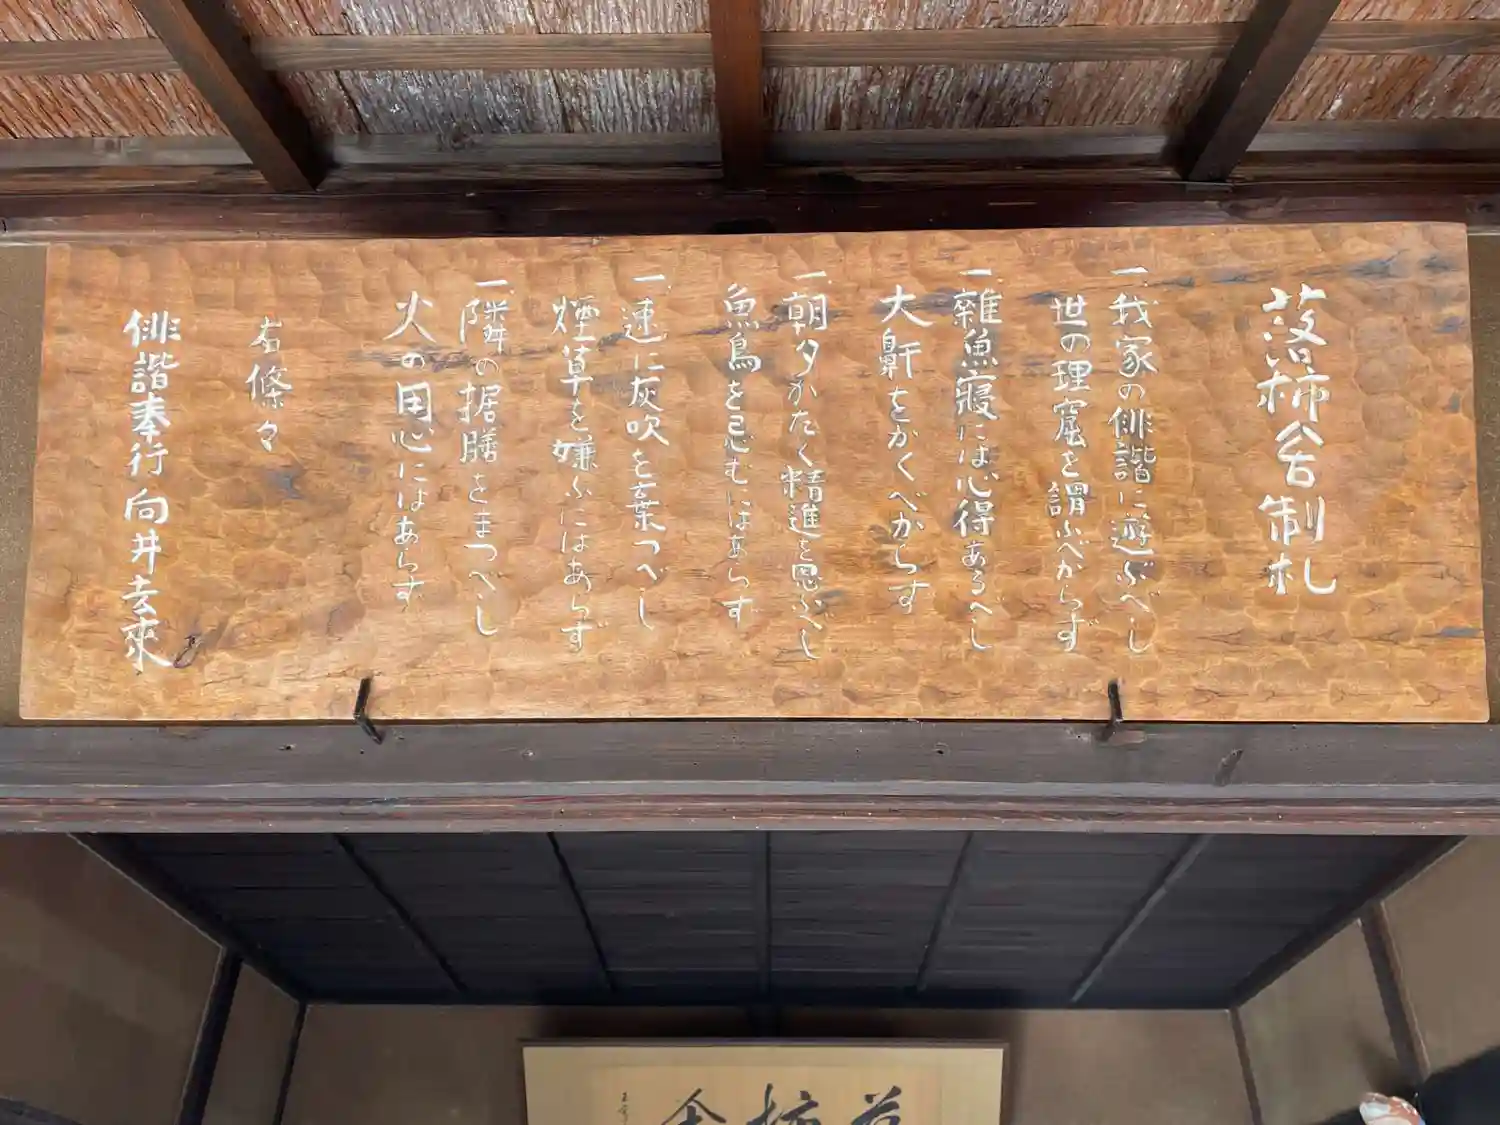 落柿舎制札
一、我家の俳諧に遊ぶべし
世の理窟を謂ふべからず
一、雑魚寝には心得あるべし
大鼾をかくべからず
一、朝夕かたく精進を思ふべし
魚鳥を忌むにはあらず
一、速に灰吹を棄つべし
煙草を嫌ふにはあらず
一、隣の据膳をまつべし
火の用心にはあらず
右條々
俳諧奉行 向井去来
落柿舎